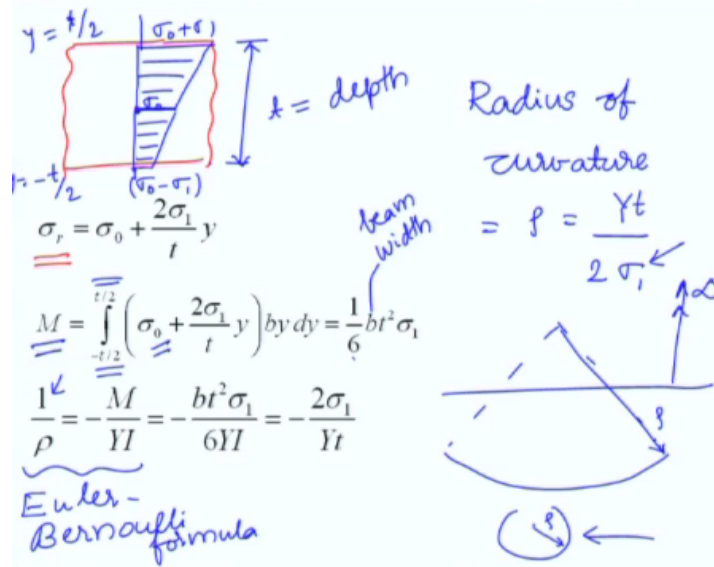 y = t/2
σ₀+σ₁
σ₀
t = depth
y=-t/2
(σ₀-σ₁)
σᵣ = σ₀ + (2σ₁/t) y
beam
width
M = ∫_{-t/2}^{t/2} (σ₀ + (2σ₁/t) y) by dy = (1/6) bt²σ₁
1/ρ = -M/YI = -bt²σ₁/6YI = -2σ₁/Yt
Euler-
Bernoulli
formula
Radius of
curvature
= ρ = Yt/2σ₁
ρ
ρ